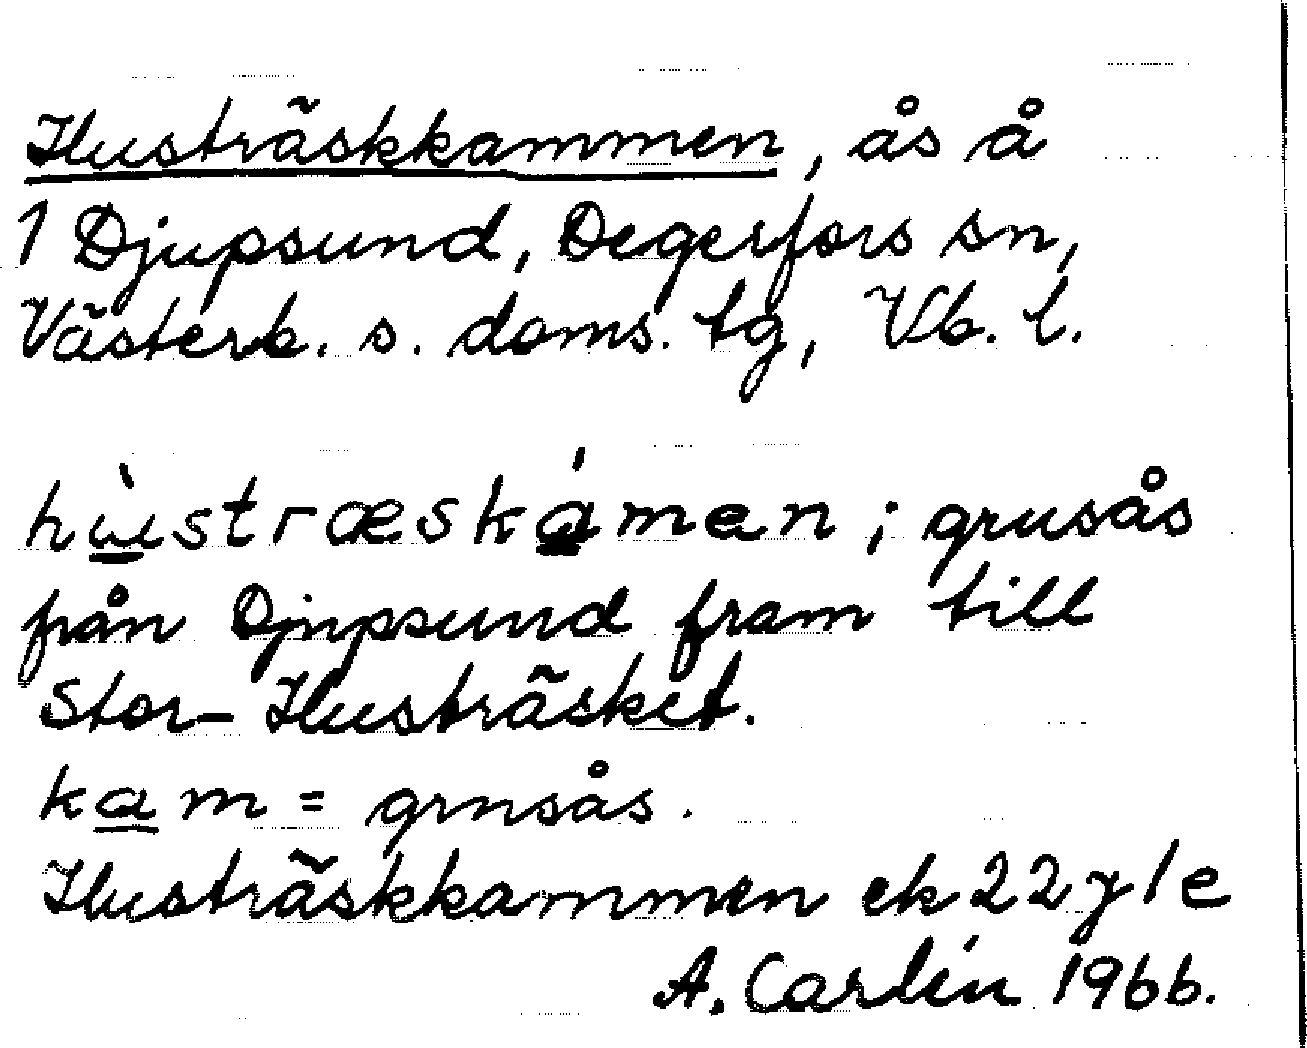 Husträskkammen, ås å
1 Djupsund, Degerfors sn,
Västerb. s. doms. tg, Vb. l.
hùstræskámen ; grusås
från Djupsund fram till
Stor-Husträsket.
kam = grusås.
Husträskkammen ek 22 y 1 e
A. Carlin 1966.